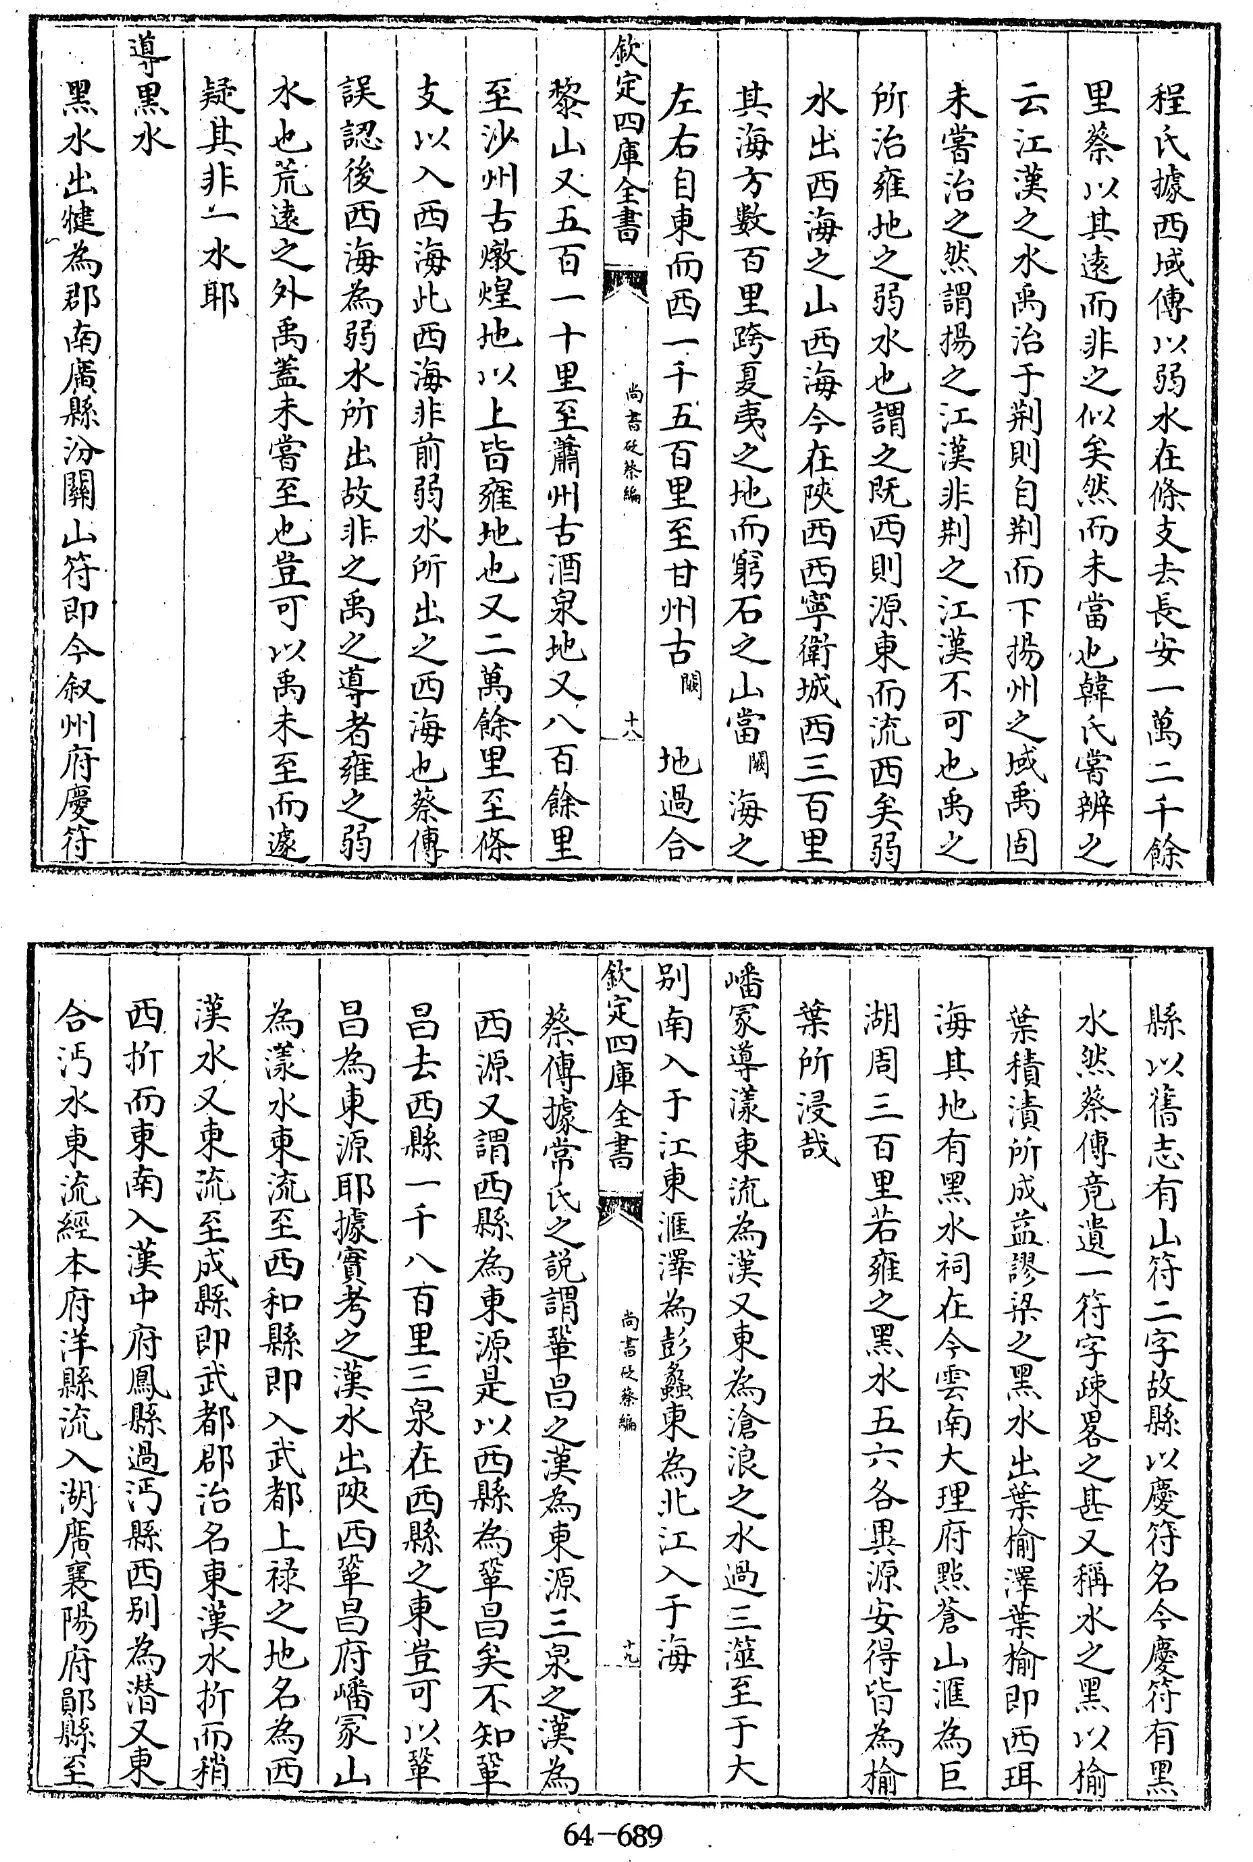 程氏據西域傳以弱水在條支去長安一萬二千餘
里蔡以其遠而非之似矣然而未當也韓氏嘗辨之
云江漢之水禹治于荆則自荆而下揚州之域禹固
未嘗治之然謂揚之江漢非荆之江漢不可也禹之
所治雍地之弱水也謂之既西則源東而流西矣弱
水出西海之山西海今在陜西西寧衛城西三百里
其海方數百里跨夏夷之地而窮石之山當闕海之
左右自東而西一千五百里至甘州古闕 地過合
欽定四庫全書 尚書砭蔡編 十八
黎山又五百一十里至肅州古酒泉地又八百餘里
至沙州古燉煌地以上皆雍地也又二萬餘里至條
支以入西海此西海非前弱水所出之西海也蔡傳
誤認後西海為弱水所出故非之禹之導者雍之弱
水也荒遠之外禹蓋未嘗至也豈可以禹未至而遽
疑其非一水耶
導黑水
黑水出犍為郡南廣縣汾關山符即今叙州府慶符
縣以舊志有山符二字故縣以慶符名今慶符有黑
水然蔡傳竟遺一符字疎畧之甚又稱水之黑以榆
葉積漬所成益謬梁之黑水出葉榆澤葉榆即西珥
海其地有黑水祠在今雲南大理府點蒼山滙為巨
湖周三百里若雍之黑水五六各異源安得皆為榆
葉所浸哉
嶓冢導漾東流為漢又東為滄浪之水過三澨至于大
别南入于江東滙澤為彭蠡東為北江入于海
欽定四庫全書 尚書砭蔡編 十九
蔡傳據常氏之說謂鞏昌之漢為東源三泉之漢為
西源又謂西縣為東源是以西縣為鞏昌矣不知鞏
昌去西縣一千八百里三泉在西縣之東豈可以鞏
昌為東源耶據實考之漢水出陜西鞏昌府嶓冢山
為漾水東流至西和縣即入武都上禄之地名為西
漢水又東流至成縣即武都郡治名東漢水折而稍
西折而東南入漢中府鳳縣過沔縣西别為潜又東
合沔水東流經本府洋縣流入湖廣襄陽府鄖縣至
64-689